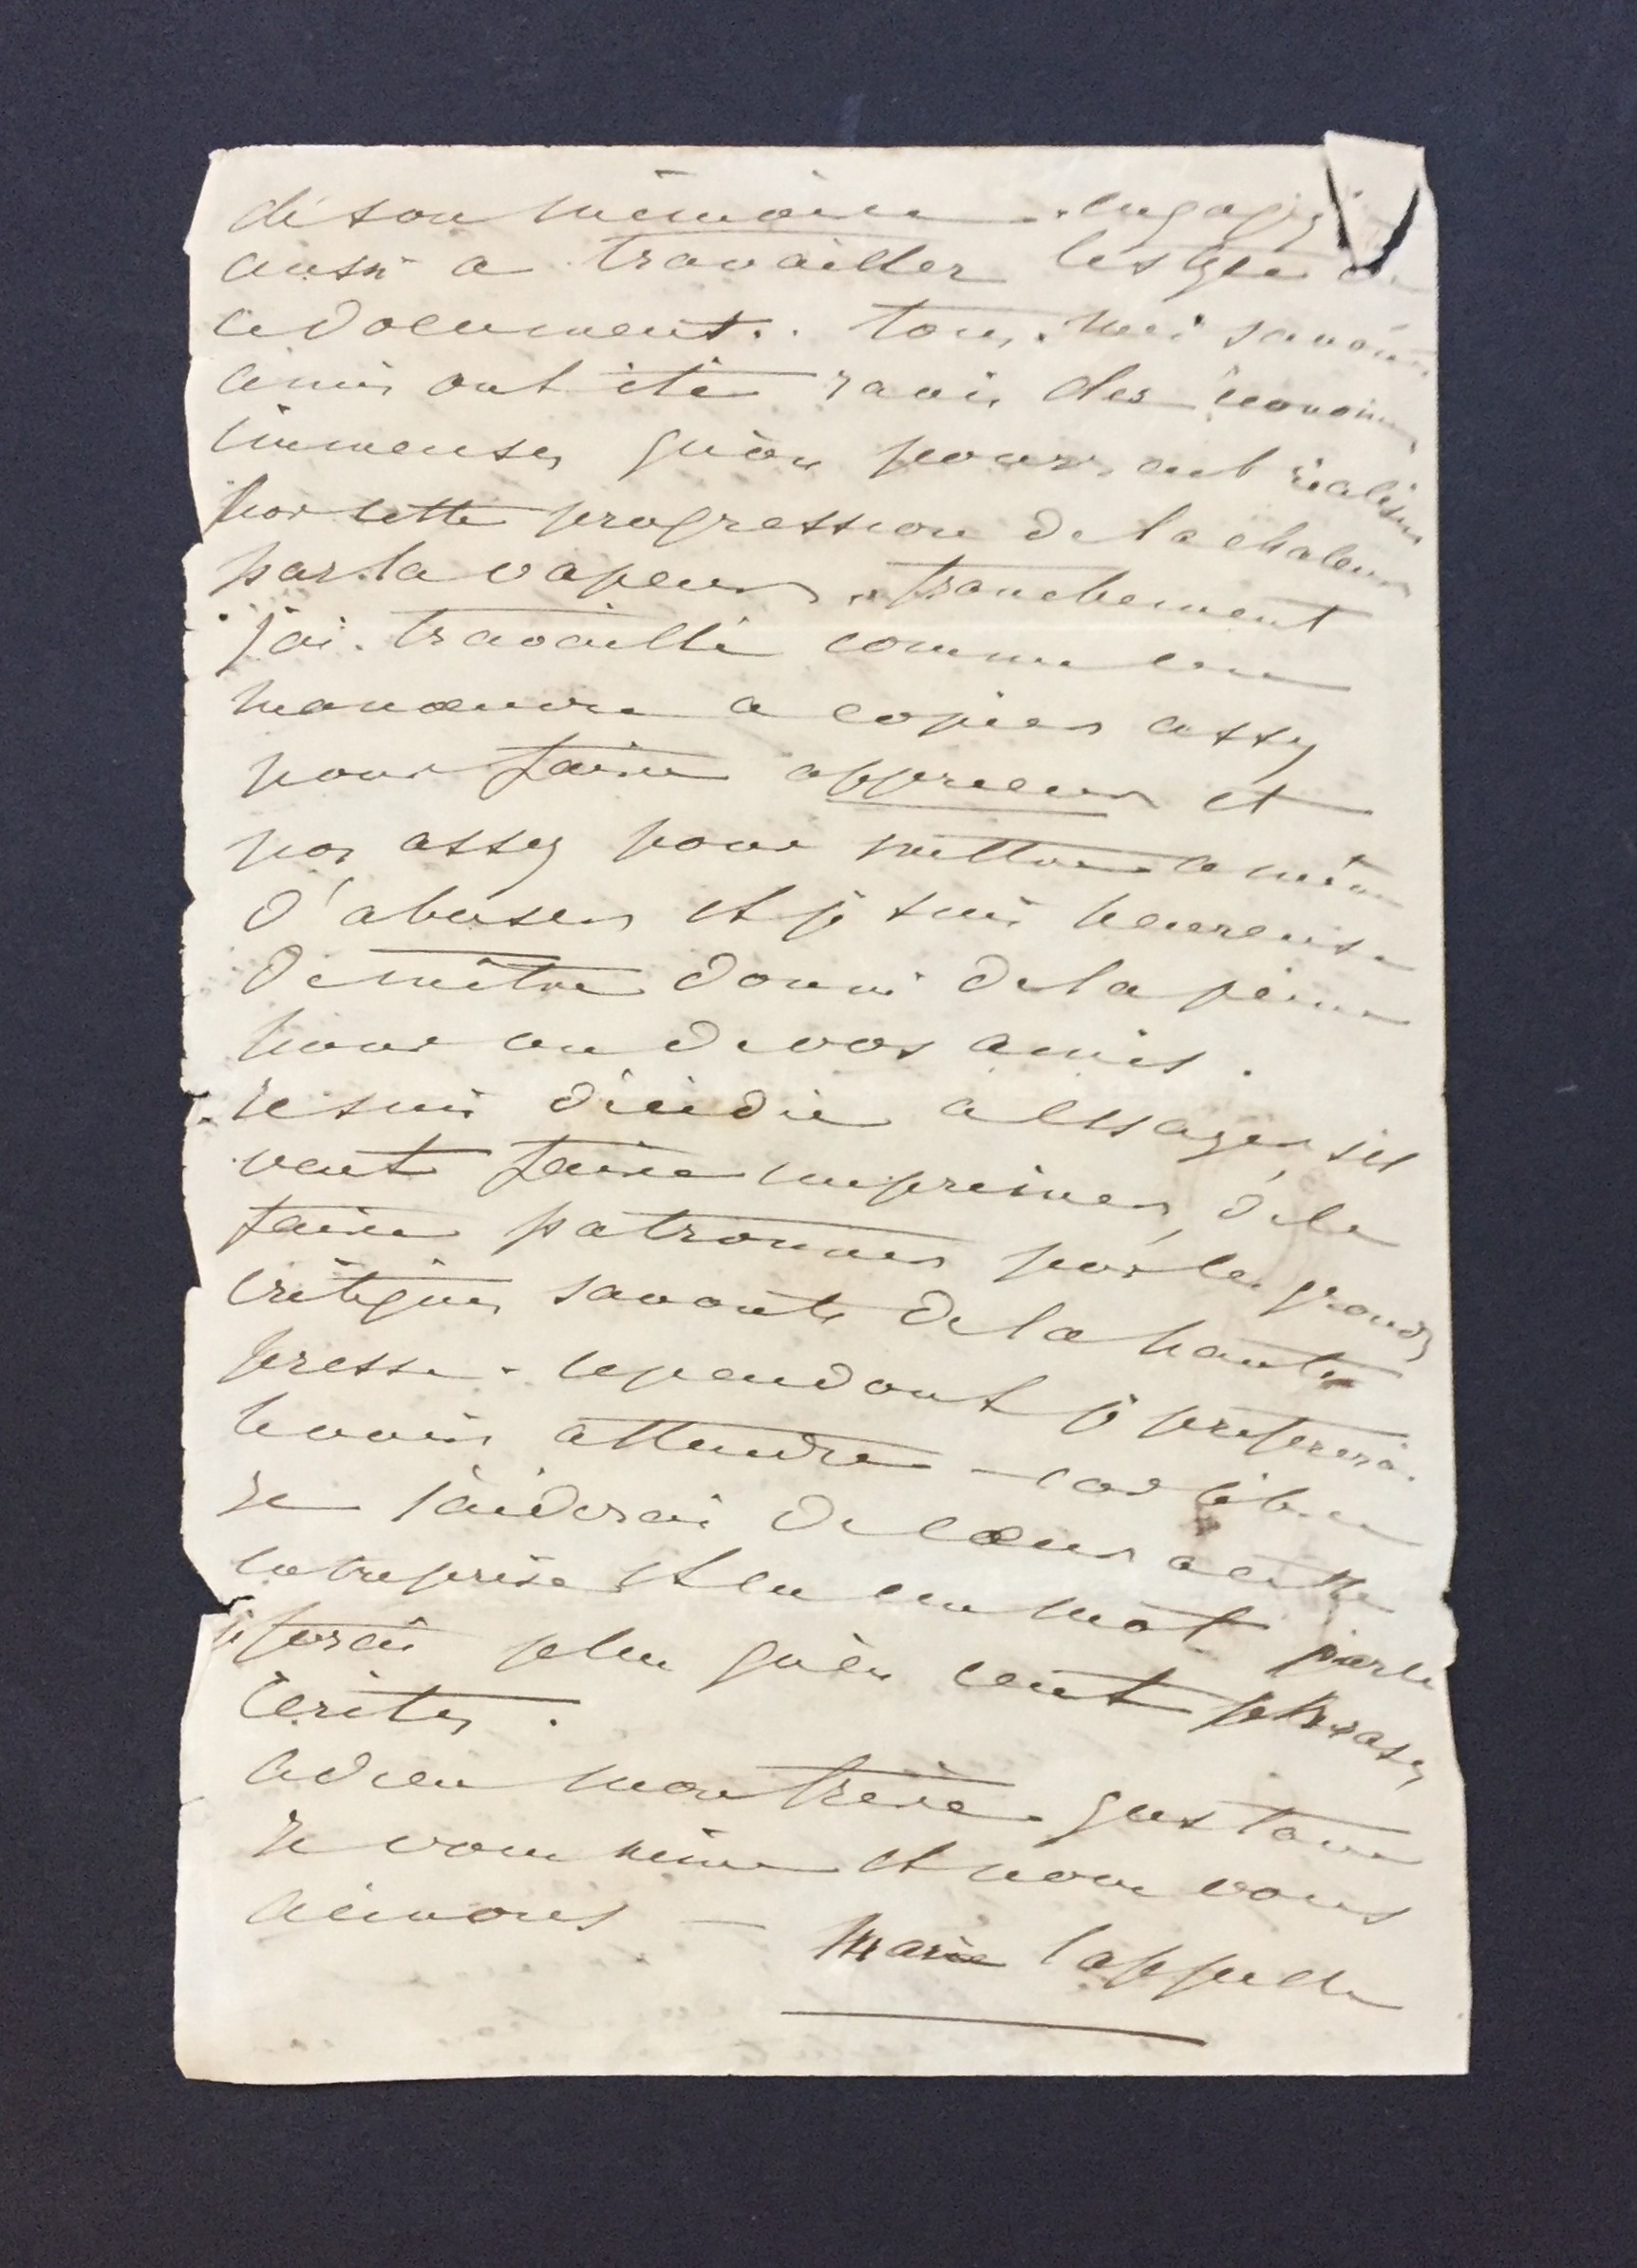 de son mémoire - engagez
aussi a travailler le style de
ce document. tous mes savants
amis ont été ravis des économies
immenses qu'on pourrait réaliser
par cette progression de la chaleur
par la vapeur. franchement
j'ai travaillé comme un
manœuvre a copier assez
pour faire apprécier et
pas assez pour mettre a même
d'abuser et je suis heureuse
de m'être donné de la peine
pour un de vos amis.
Je suis décidée a essayer, s'il
veut faire imprimer, de le
faire patronner par les grands
critiques savants de la haute
presse - cependant je préférerai
attendre - car libre
Je l'aiderai de cœur a cette
entreprise et en un mot parlé
je ferai plus qu'en cent phrases
écrites.
adieu mon frère gustave
Je vous aime et nous vous
aimons - Marie Cappelle